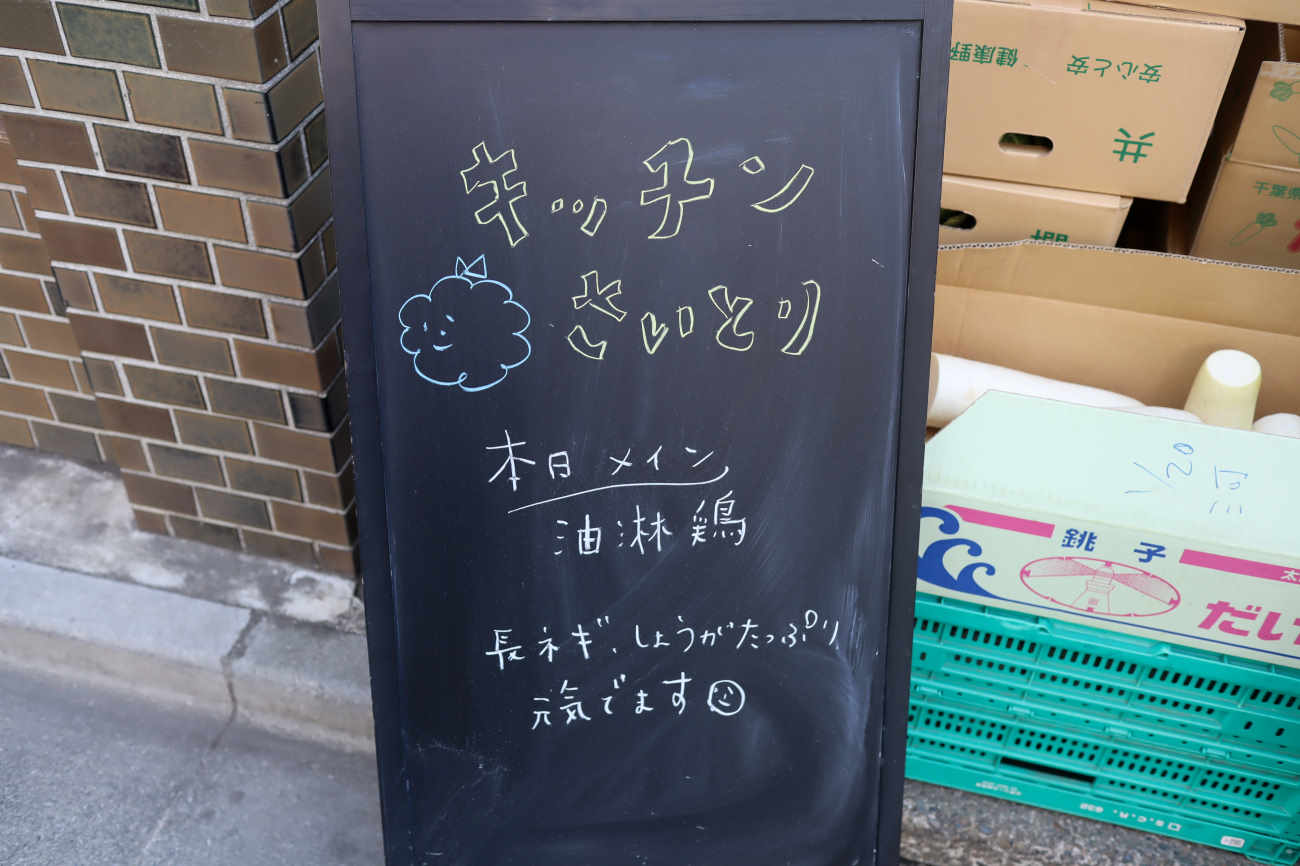 キッチン
さいとり
本日 メイン
油淋鶏
長ネギ、しょうがたっぷり
元気でます
安心と安
健康野
共
千葉県
1/20
銚子
太
だい